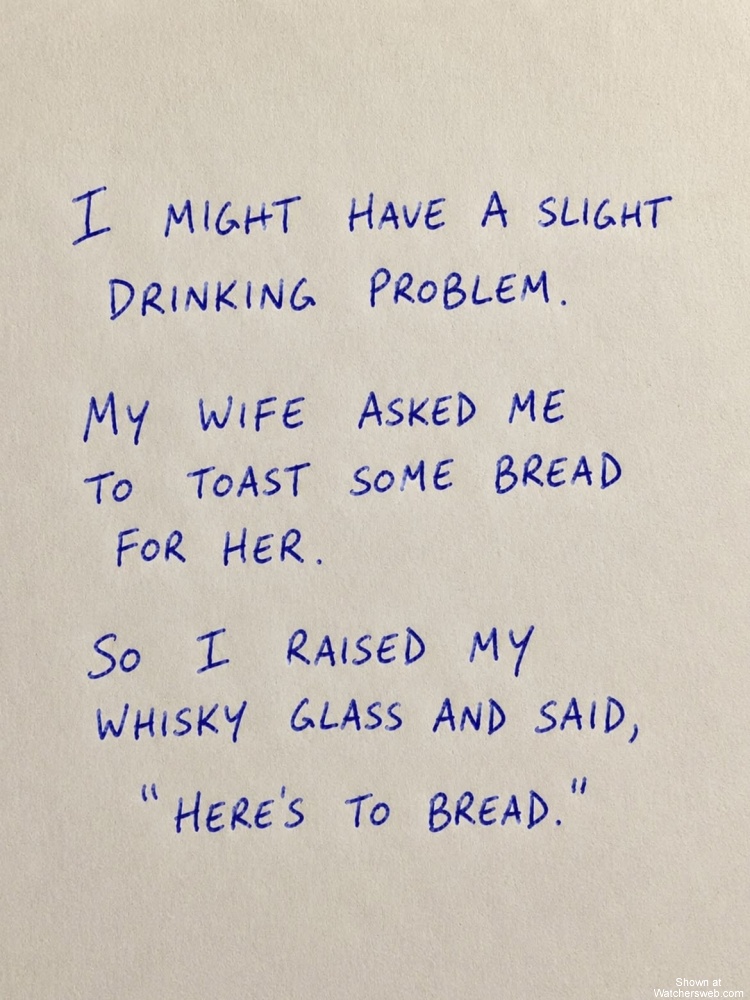 I MIGHT HAVE A SLIGHT
DRINKING PROBLEM.
MY WIFE ASKED ME
TO TOAST SOME BREAD
FOR HER.
SO I RAISED MY
WHISKY GLASS AND SAID,
"HERE'S TO BREAD."
Shown at
Watchersweb.com